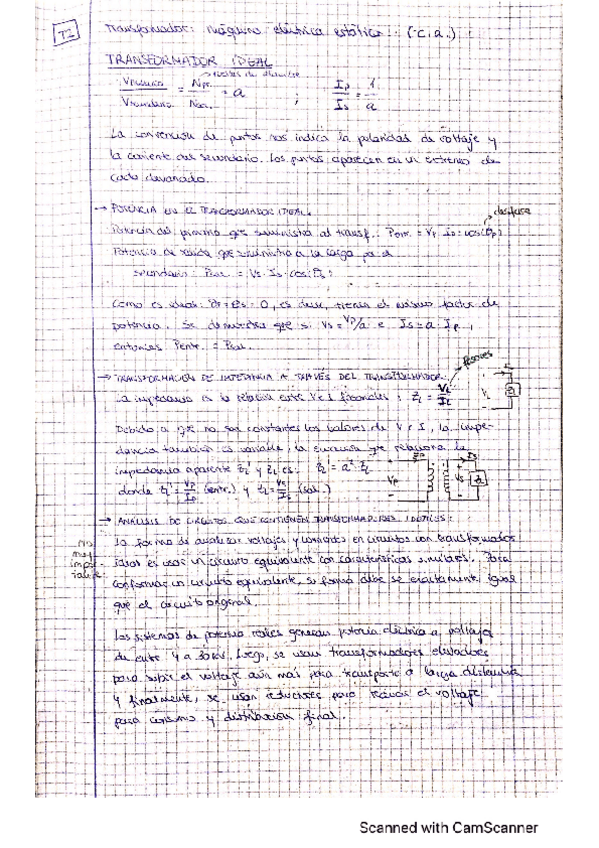 T2
Transformador: máquina eléctrica estática (c.a.)
TRANSFORMADOR IDEAL
Vprimario / Vsecundario = Npr. / Nsec. = a ; Ip / Is = 1 / a
La convención de puntos nos indica la polaridad de voltaje y
la corriente del secundario. Los puntos aparecen en un extremo de
cada devanado.
→ POTENCIA EN EL TRANSFORMADOR IDEAL
desfase
Potencia del primario que suministra al transf.: Pentr. = Vp Ip cos(θp)
Potencia de salida que suministra a la carga por el
secundario: Psal. = Vs · Is · cos(θs)
Como es ideal: θp = θs = θ, es decir, tienen el mismo factor de
potencia. Se demuestra que si Vs = Vp/a e Is = a Ip,
entonces Pentr. = Psal.
→ TRANSFORMACIÓN DE IMPEDANCIA A TRAVÉS DEL TRANSFORMADOR
fasores
La impedancia es la relación entre V e I fasoriales: ZL = VL / IL
Debido a que no son constantes los valores de V e I, la impe-
dancia también es variable, la que relaciona la
impedancia aparente ZL' y ZL es: ZL' = a² · ZL
donde ZL' = Vp / Ip (entr.) y ZL = Vs / Is (sal.)
→ ANÁLISIS DE CIRCUITOS QUE CONTIENEN TRANSFORMADORES IDEALES:
No
muy
impor-
tante
La forma de analizar voltajes y corrientes en circuitos con transformador
ideal es usar un circuito equivalente con características similares. Para
conformar un circuito equivalente, su forma debe ser exactamente igual
que el circuito original.
Los sistemas de potencia reales generan potencia eléctrica a voltajes
de entre 4 a 30 kV. Luego, se usan transformadores elevadores
para subir el voltaje aún más para transporte a larga distancia
y finalmente, se usan reductores para reducir el voltaje
para consumo y distribución final.
Scanned with CamScanner